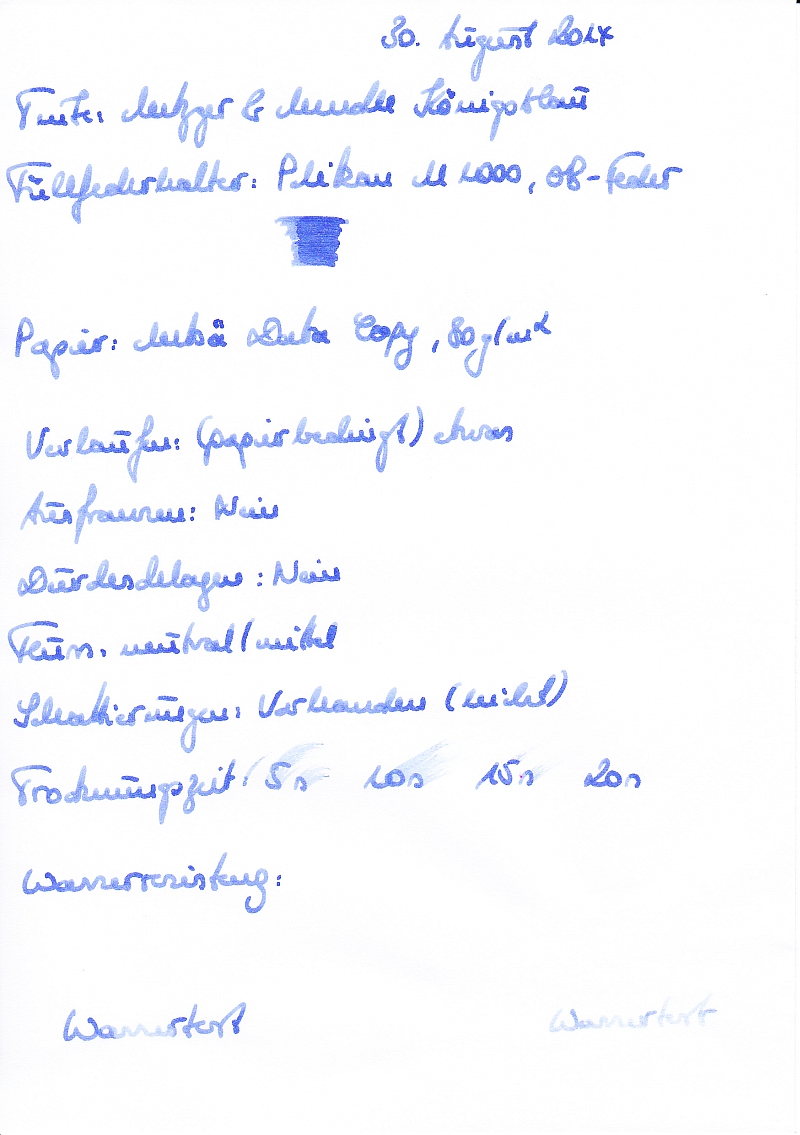 30. August 2014
Tinte: Metzger & Mendle Königsblau
Füllfederhalter: Pelikan M 1000, OB-Feder
Papier: MetsÄ Data Copy, 80g/m²
Verlaufen: (papierbedingt) etwas
Ausfransen: Nein
Durchschlagen: Nein
Fluss: neutral/mittel
Schattierungen: Vorhanden (leicht)
Trocknungszeit: 5s 10s 15s 20s
Wasserresistenz:
Wassertest Wassertest